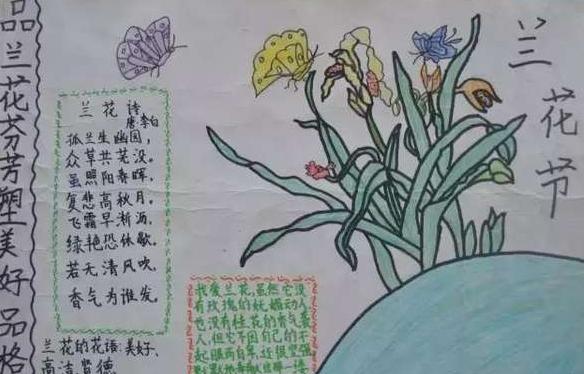 品兰花芬芳塑美好品格
兰花诗
唐李白
孤兰生幽园，
众草共芜没。
虽照阳春晖，
复悲高秋月。
飞霜早淅沥，
绿艳恐休歇。
若无清风吹，
香气为谁发。
兰花的花语：美好、
高洁贤德
我爱兰花，虽然它没
有玫瑰的妩媚动人
也没有桂花的香气袭
人，但它不因自己的不
起眼而自卑，还很坚强
兰花节